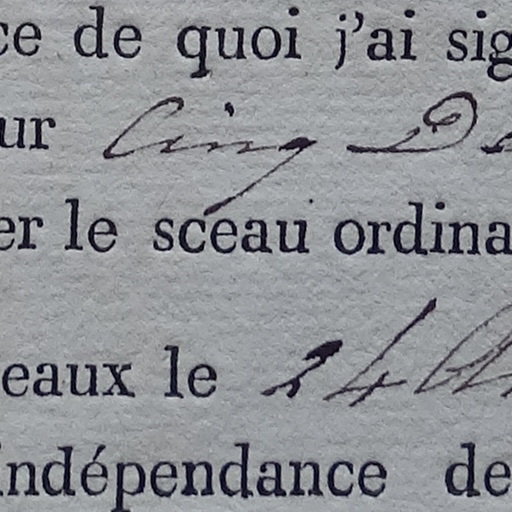 ce de quoi j'ai sig
ur Cinq D
er le sceau ordina
eaux le 24
indépendance de